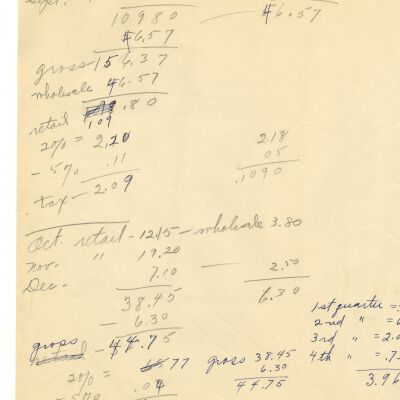 Sept.
109 80 — 46.57
46.57
gross - 156.37
wholesale 46.57
retail 109.80
20% = 2.20 2.18
- 5% .11 05
tax - 2.09 .1090
Oct. retail - 12.15 - wholesale 3.80
Nov. " 19.20
Dec. - 7.10 — 2.50
38.45 6.30
- 6.30
gross 44.75
retail -
20% = 77 gross 38.45
- 5% .04 6.30
44.75
1st quarter =
2nd " =
3rd " = 2.0
4th " = .7
3.96